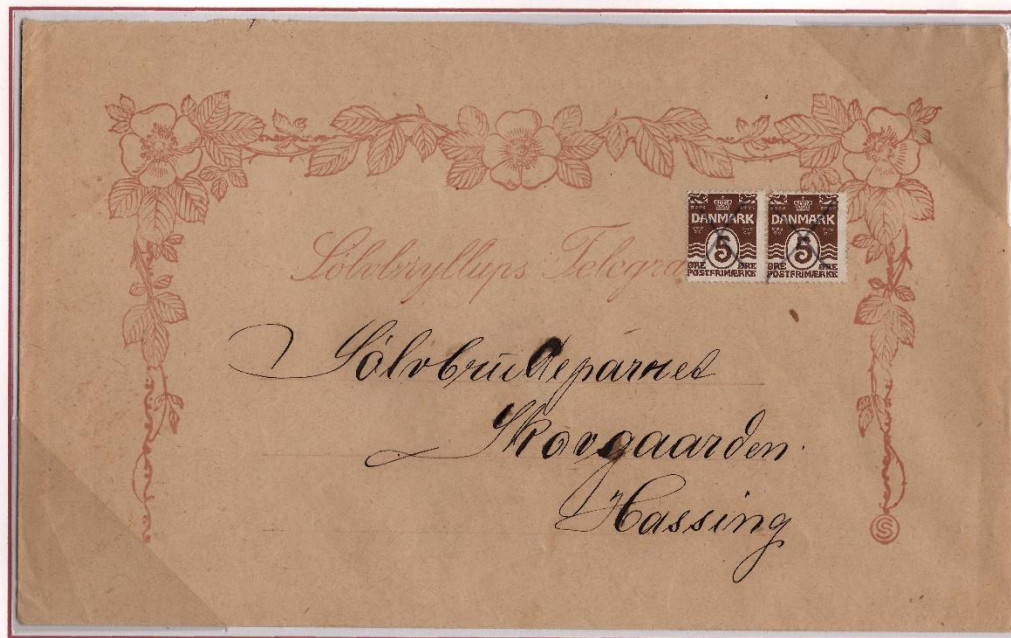 Sølvbryllups Telegra
DANMARK
5
ØRE ØRE
POSTFRIMÆRKE
DANMARK
5
ØRE ØRE
POSTFRIMÆRKE
Sølvbrudeparret
Skovgaarden.
Hassing